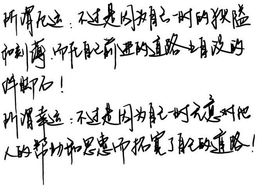 所谓厄运：不过是因为自己一时的狭隘
和刻薄而在自己前进的道路上自设的
绊脚石！
所谓幸运：不过是因为自己一时无意对他
人的帮助和恩惠而拓宽了自己的道路！